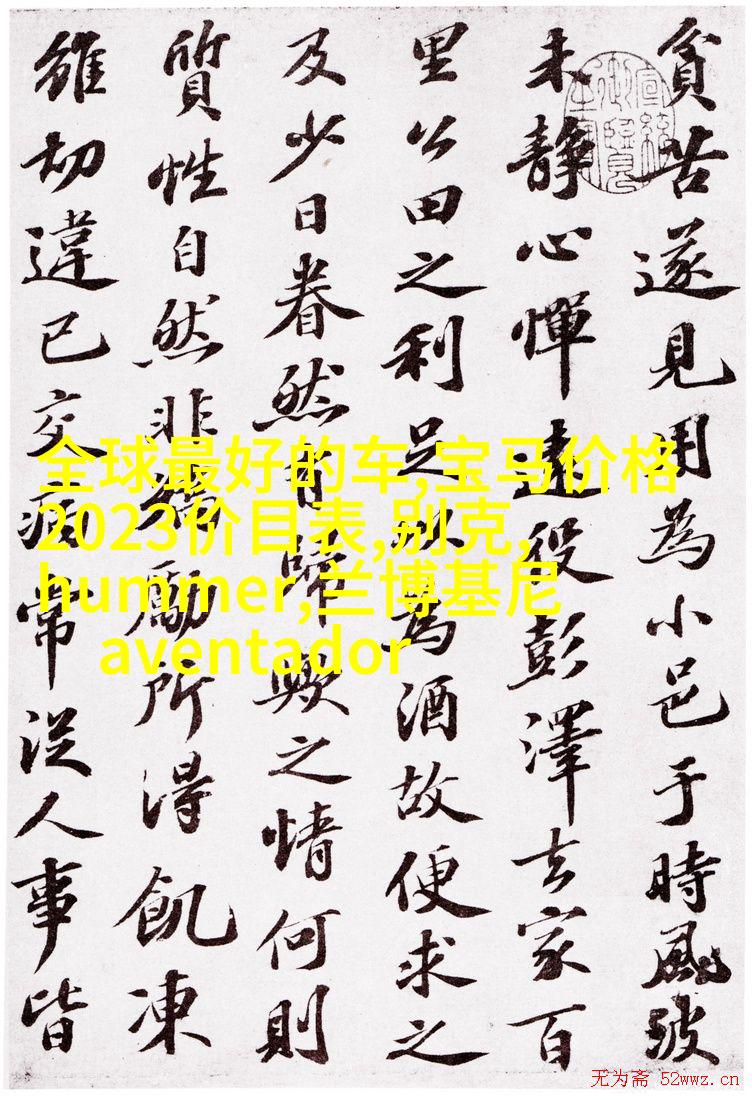 貧苦遂見用為小邑于時風波
未靜心憚遠役彭澤去家百
里公田之利足以為酒故便求之
及少日眷然有歸歟之情何則
質性自然非矯勵所得飢凍
雖切違己交病常從人事皆
全球最好的车,宝马价格
2023价目表,别克,
hummer,兰博基尼
aventador
无为斋 52wwz.cn